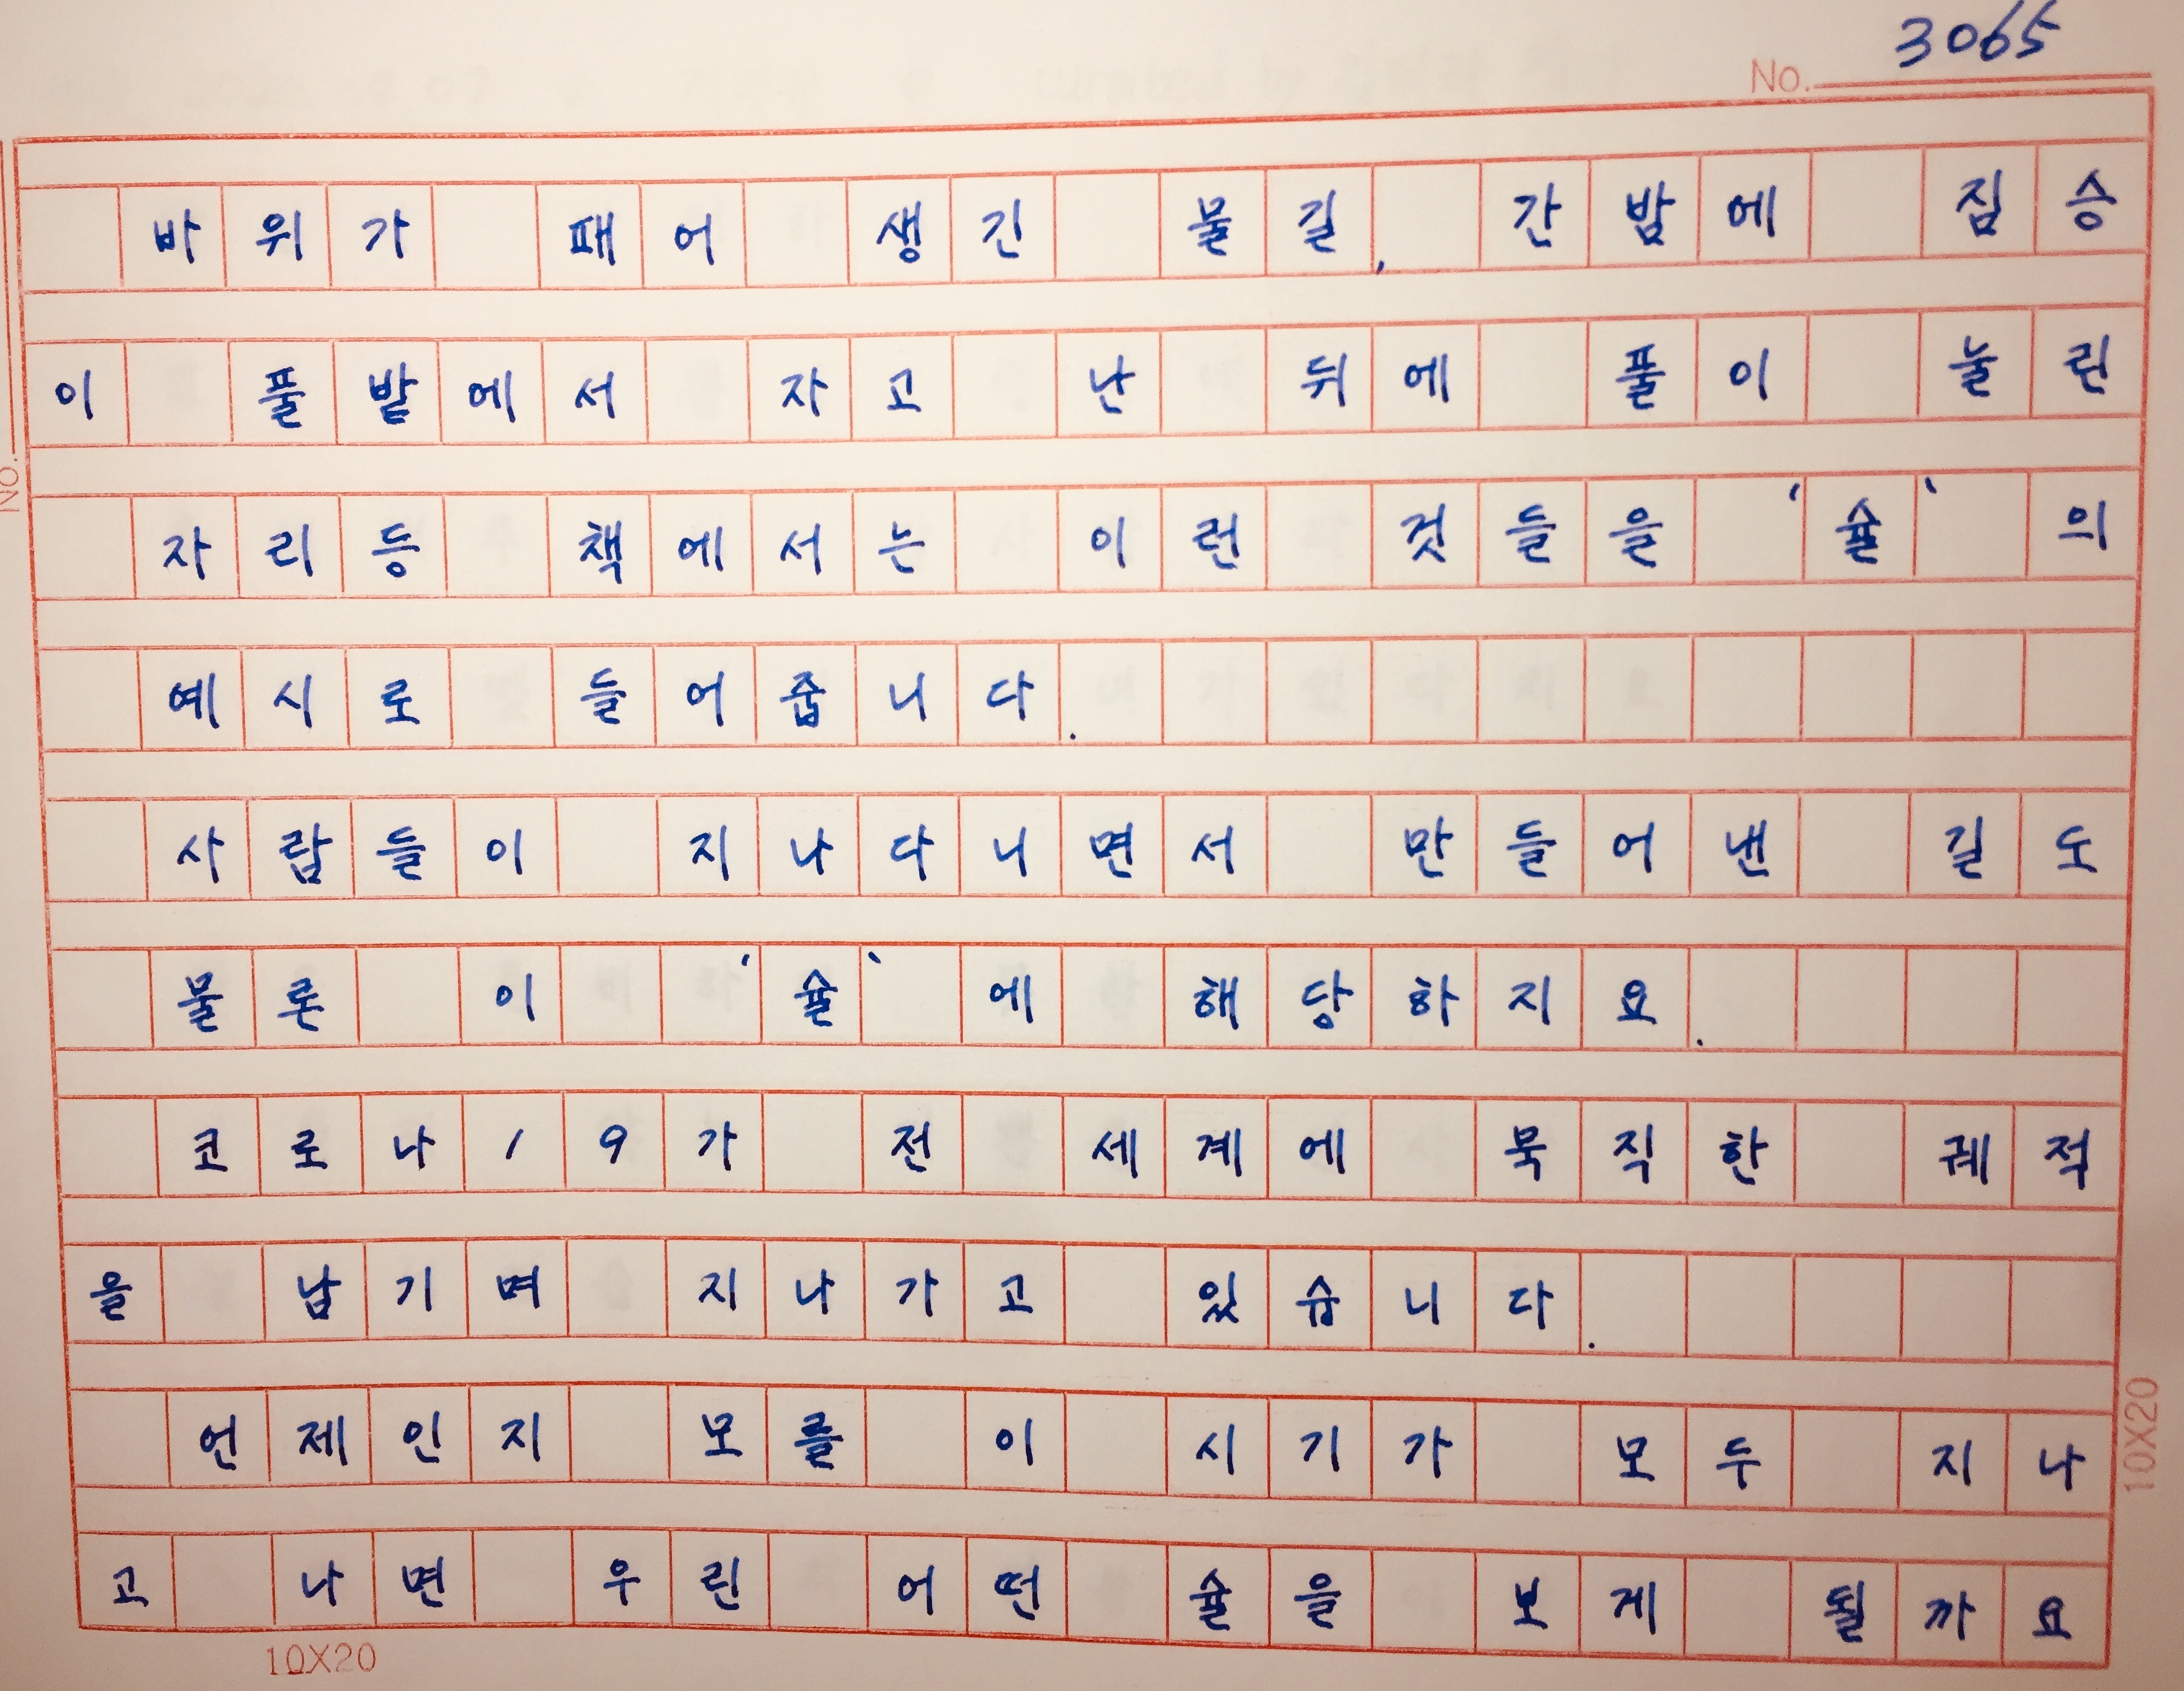 3065
No.
바위가 패어 생긴 물길, 간밤에 짐승
이 풀밭에서 자고 난 뒤에 풀이 눌린
자리등 책에서는 이런 것들을 '슐'의
예시로 들어줍니다.
사람들이 지나다니면서 만들어낸 길도
물론 이 '슐'에 해당하지요.
코로나19가 전 세계에 묵직한 궤적
을 남기며 지나가고 있습니다.
언제인지 모를 이 시기가 모두 지나
고 나면 우린 어떤 슐을 보게 될까요
10X20
10X20
No.